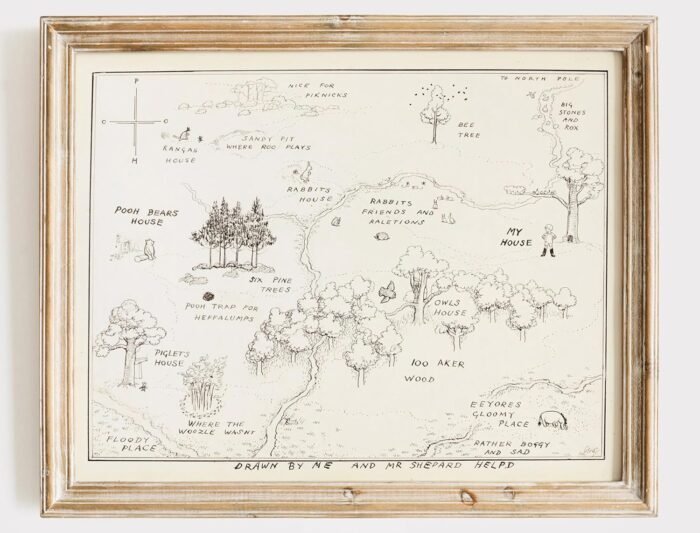 P
O
O
H
TO NORTH POLE
NICE FOR
PIKNICKS
BIG
STONES
AND
ROX
BEE
TREE
SANDY PIT
WHERE ROO PLAYS
KANGAS
HOUSE
RABBITS
HOUSE
RABBITS
FRIENDS AND
RALETIONS
POOH BEARS
HOUSE
MY
HOUSE
SIX PINE
TREES
POOH TRAP FOR
HEFFALUMPS
OWLS
HOUSE
PIGLETS
HOUSE
100 AKER
WOOD
EEYORES
GLOOMY
PLACE
WHERE THE
WOOZLE WASNT
FLOODY
PLACE
RATHER BOGGY
AND SAD
DRAWN BY ME AND MR SHEPARD HELPD